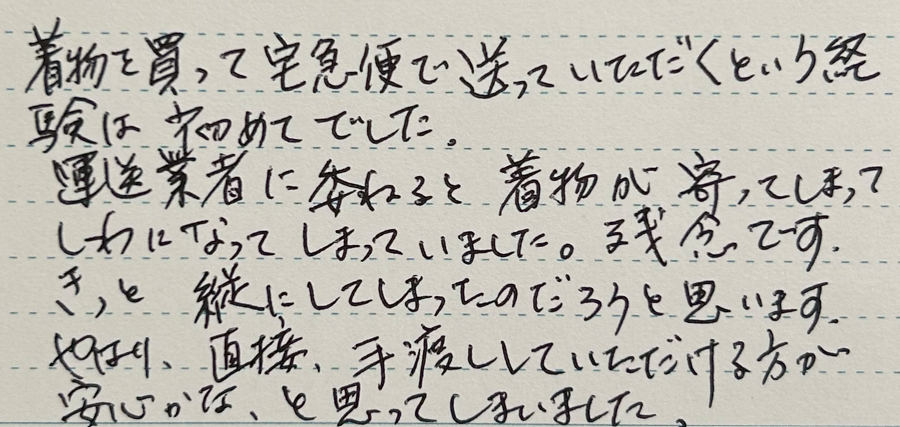 着物を買って宅急便で送っていただくという経
験は初めてでした。
運送業者に委ねると着物が寄ってしまって
しわになってしまっていました。残念です.
きっと縦にしてしまったのだろうと思います.
やはり、直接、手渡ししていただける方が
安心かな、と思ってしまいました。